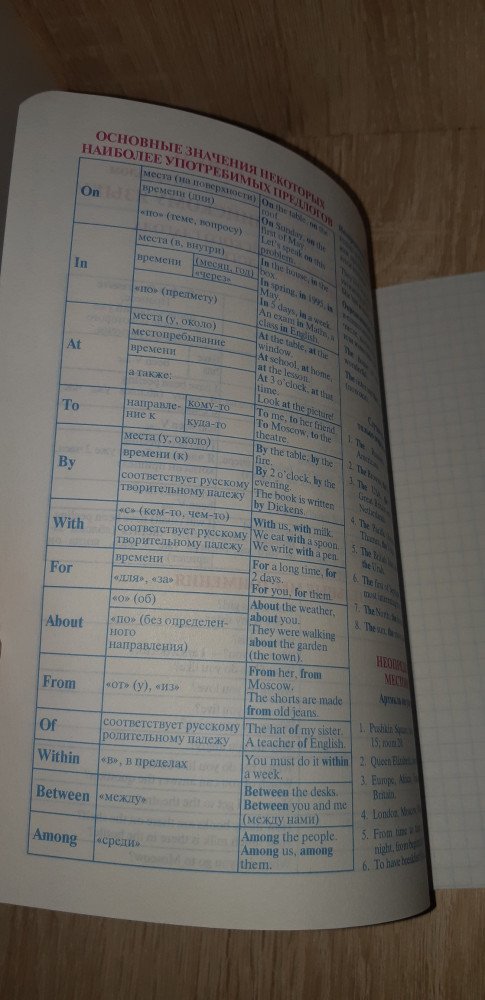 ОСНОВНЫЕ ЗНАЧЕНИЯ НЕКОТОРЫХ
НАИБОЛЕЕ УПОТРЕБИМЫХ ПРЕДЛОГОВ
On
места (на поверхности)
времени (дни)
«по» (теме, вопросу)
On the table, on the
roof.
On Sunday, on the
first of May.
Let's speak on this
problem.
In
места (в, внутри)
времени
(месяц, год)
«через»
«по» (предмету)
In the house, in the
box.
In spring, in 1995, in
May.
In 5 days, in a week.
An exam in Maths, a
class in English.
At
места (у, около)
местопребывание
времени
а также:
At the table, at the
window.
At school, at home,
at the lesson.
At 3 o'clock, at that
time.
Look at the picture!
To
направле-
ние к
кому-то
куда-то
To me, to her friend.
To Moscow, to the
theatre.
By
места (у, около)
времени (к)
соответствует русскому
творительному падежу
By the table, by the
fire.
By 2 o'clock, by the
evening.
The book is written
by Dickens.
With
«с» (кем-то, чем-то)
соответствует русскому
творительному падежу
With us, with milk.
We eat with a spoon.
We write with a pen.
For
времени
«для», «за»
For a long time, for
2 days.
For you, for them.
About
«о» (об)
«по» (без определен-
ного
направления)
About the weather,
about you.
They were walking
about the garden
(the town).
From
«от» (у), «из»
From her, from
Moscow.
The shorts are made
from old jeans.
Of
соответствует русскому
родительному падежу
The hat of my sister.
A teacher of English.
Within
«в», в пределах
You must do it within
a week.
Between
«между»
Between the desks.
Between you and me
(между нами)
Among
«среди»
Among the people.
Among us, among
them.
1. The
2. The
3. The
4. The
5. The British
the
6. The
7. The North,
8. The
1. Pushkin
15, room
2. Queen
3. Europe,
Britain.
4. London,
5. From
night,
6. To have